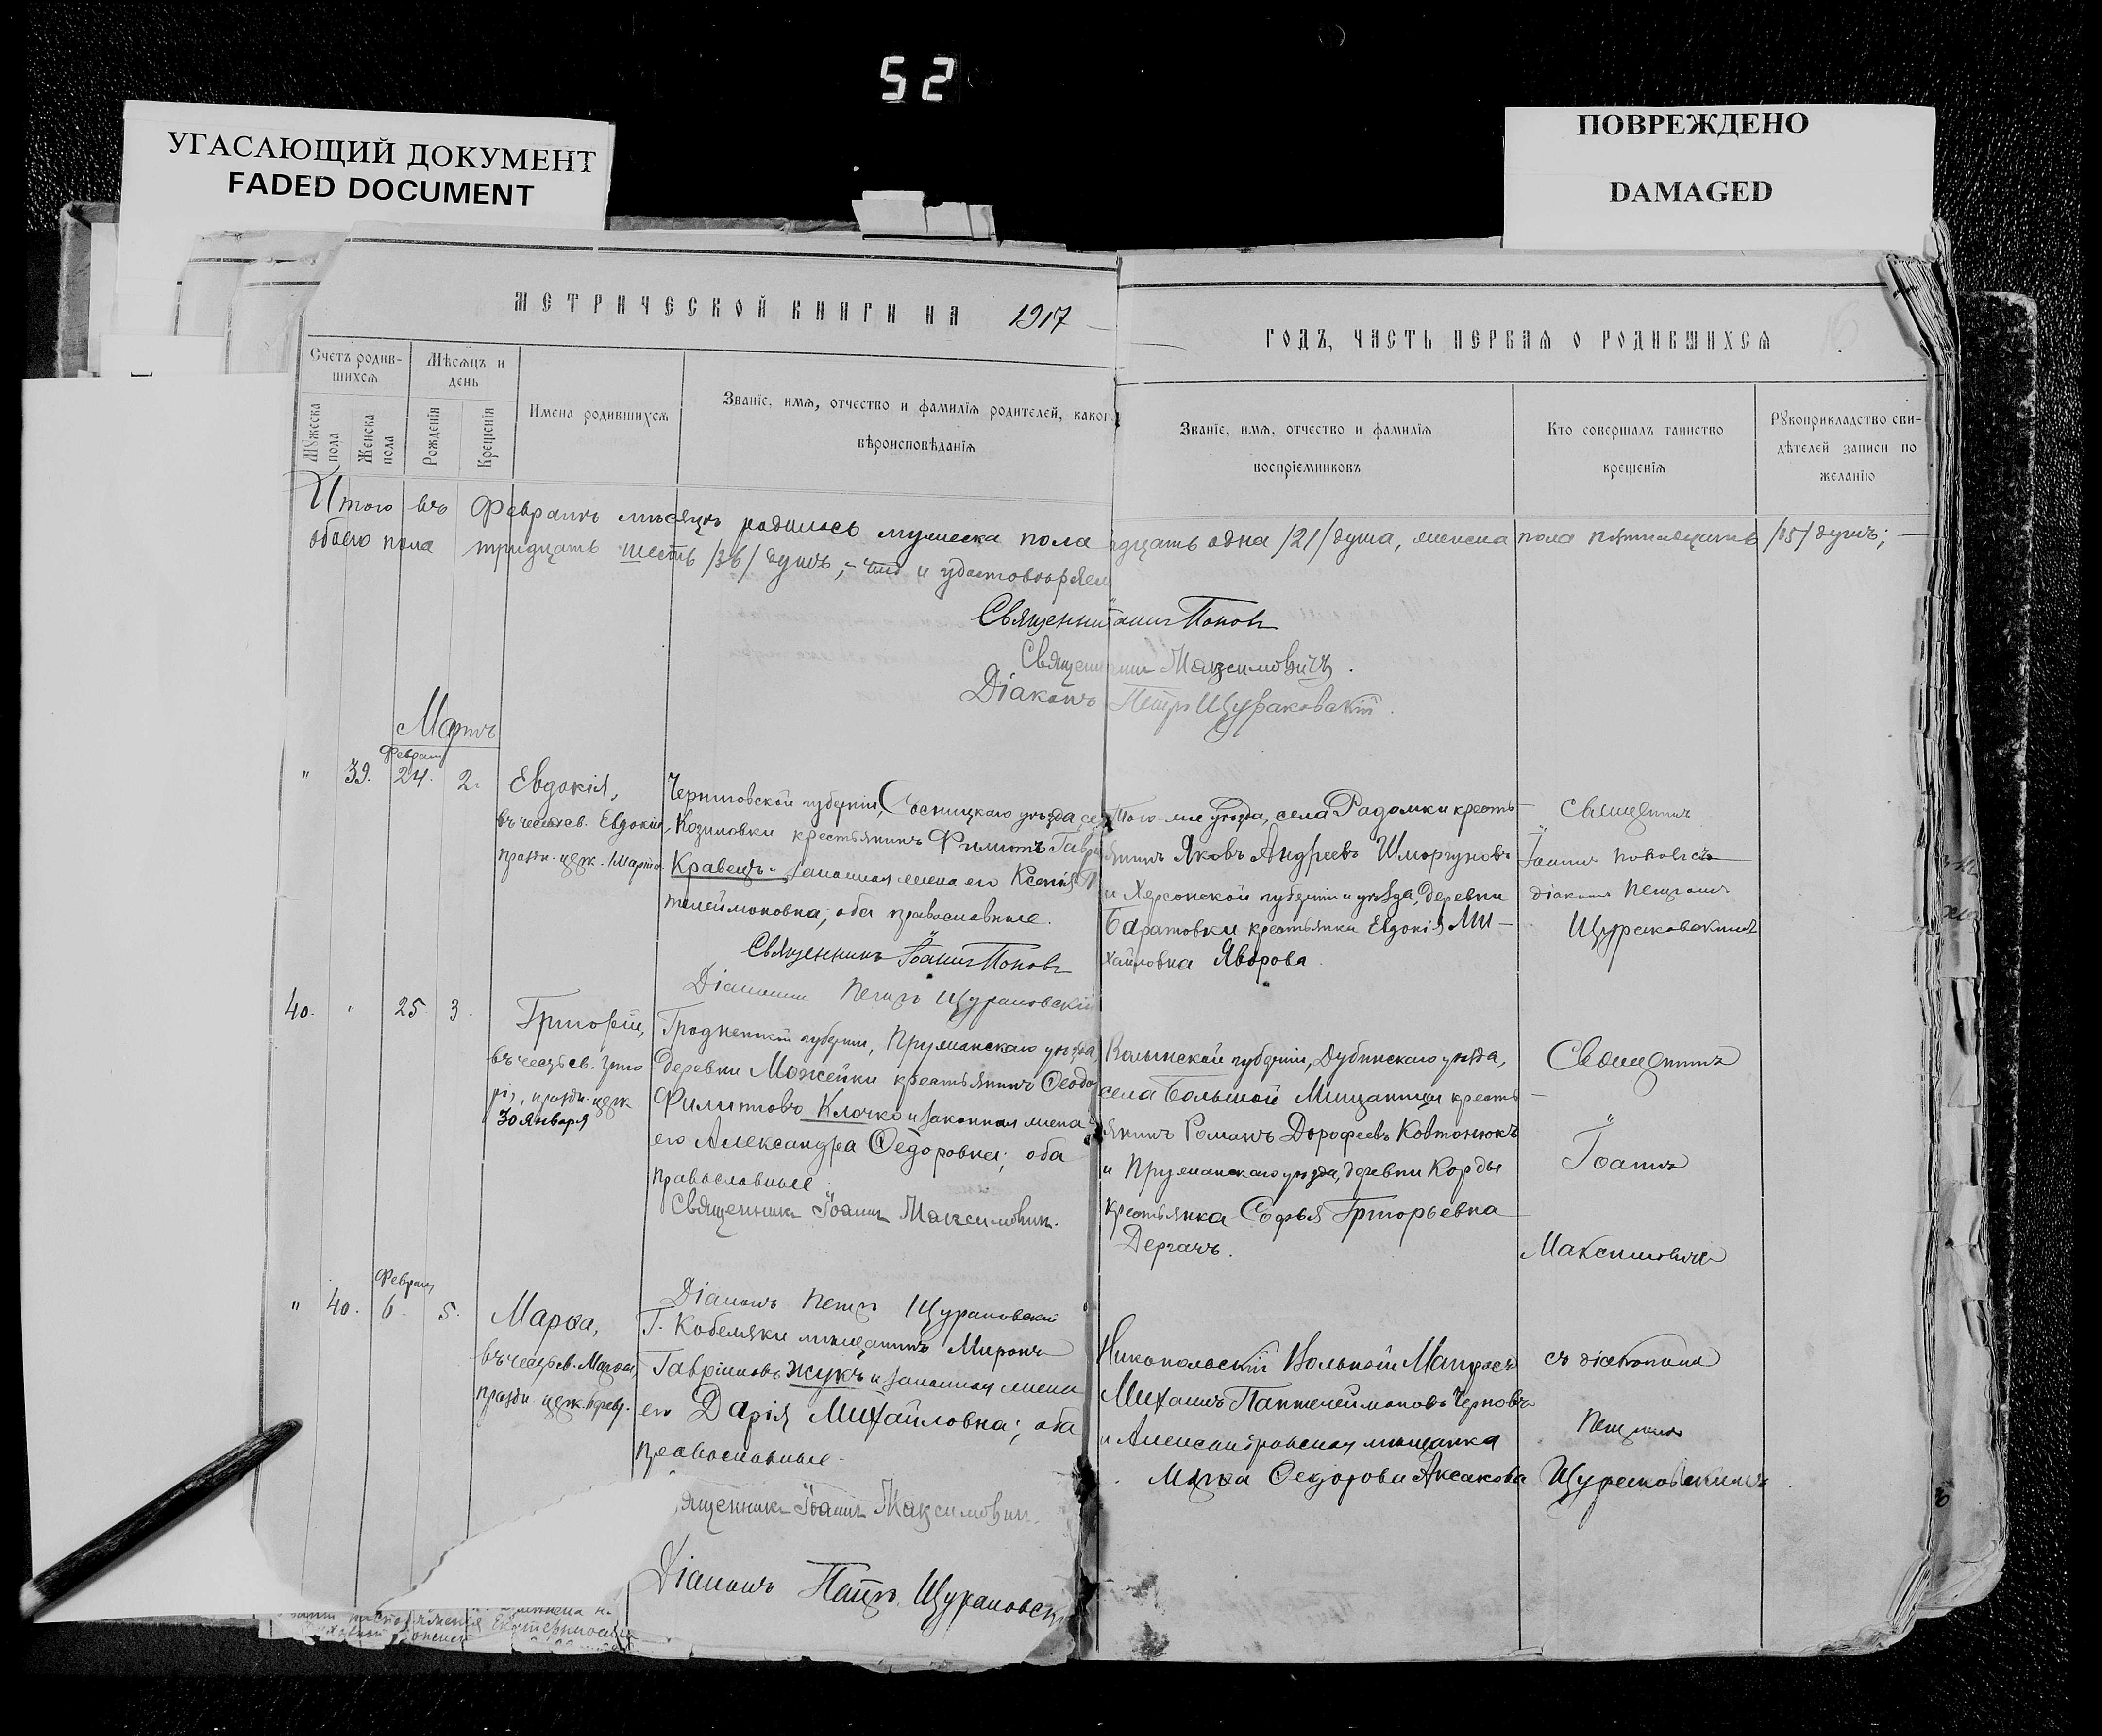 52
УГАСАЮЩИЙ ДОКУМЕНТ
FADED DOCUMENT
ПОВРЕЖДЕНО
DAMAGED
МЕТРИЧЕСКОЙ КНИГИ НА 1917
ГОДЪ, ЧАСТЬ ПЕРВАЯ О РОДИВШИХСЯ
Счетъ родив-
шихся
Мѣсяцъ и
день
Мужеска пола
Женска пола
Рожденія
Крещенія
Имена родившихся
Званіе, имя, отчество и фамилія родителей, каког
вѣроисповѣданія
Званіе, имя, отчество и фамилія
воспріемниковъ
Кто совершалъ таинство
крещенія
Рукоприкладство сви-
дѣтелей записи по
желанію
Итого въ Февралѣ мѣсяцѣ родилось мужеска пола дцать одна /21/ душа, женска пола пятнадцать /15/ душъ;
обоего пола тридцать шесть /36/ душъ; что и удостовѣряем
Священни оаннъ Поповъ
Священ Максимовичъ.
Діаконъ Петръ Щураковскій.
Мартъ
Феврал
" 39. 24. 2. Евдокія,
въ честь св. Евдокіи,
праздн. церк. 1 марта.
Черниговской губерніи, Сосницкаго уѣзда, се
Козиловки крестьянинъ Филиппъ Гаврі
Кравецъ и законная жена его Ксенія П
телеймоновна; оба православные.
Священникъ Іоаннъ Поповъ
Діаконъ Петръ Щураковскій
Того же уѣзда, села Радомки кресть-
янинъ Яковъ Андреевъ Шморгуновъ
и Херсонской губерніи и уѣзда, деревни
Баратовки крестьянка Евдокія Ми-
хайловна Яворова.
Священникъ
Іоаннъ Поповъ съ
діаконъ Петромъ
Щураковскимъ
40. " 25. 3. Григорій,
въ честь св. Григо
рія, праздн. церк.
30 Января
Гродненской губерніи, Пружанскаго уѣзда
деревни Можейки крестьянинъ Ѳеодо
Филипповъ Клочко и законная жена
его Александра Ѳедоровна; оба
православные.
Священникъ Іоаннъ Максимовичъ.
Діаконъ Петръ Щураковскій
Волынской губерніи, Дубинскаго уѣзда,
села Большой кресть-
янинъ Романъ Дорофеевъ Ковтонюкъ
и Пружанскаго уѣзда, деревни Корды
крестьянка Софья Григорьевна
Дергачъ.
Священникъ
Іоаннъ
Максимовичъ
Феврал
" 40. 6. 5. Марѳа,
въ честь св. Марѳы,
праздн. церк. 6 февр.
Г. Кобеляки мѣщанинъ Миронъ
Гавріиловъ Жукъ и законная жена
его Дарія Михайловна; оба
православные.
ященникъ Іоаннъ Максимовичъ.
Діаконъ Петръ Щураковск
Никопольскій Вольный Матросъ
Михаилъ Пантелеймоновъ Черновъ
и Александровская мѣщанка
Марѳа Ѳедорова Аксакова
съ діакономъ
Петромъ
Щураковскимъ